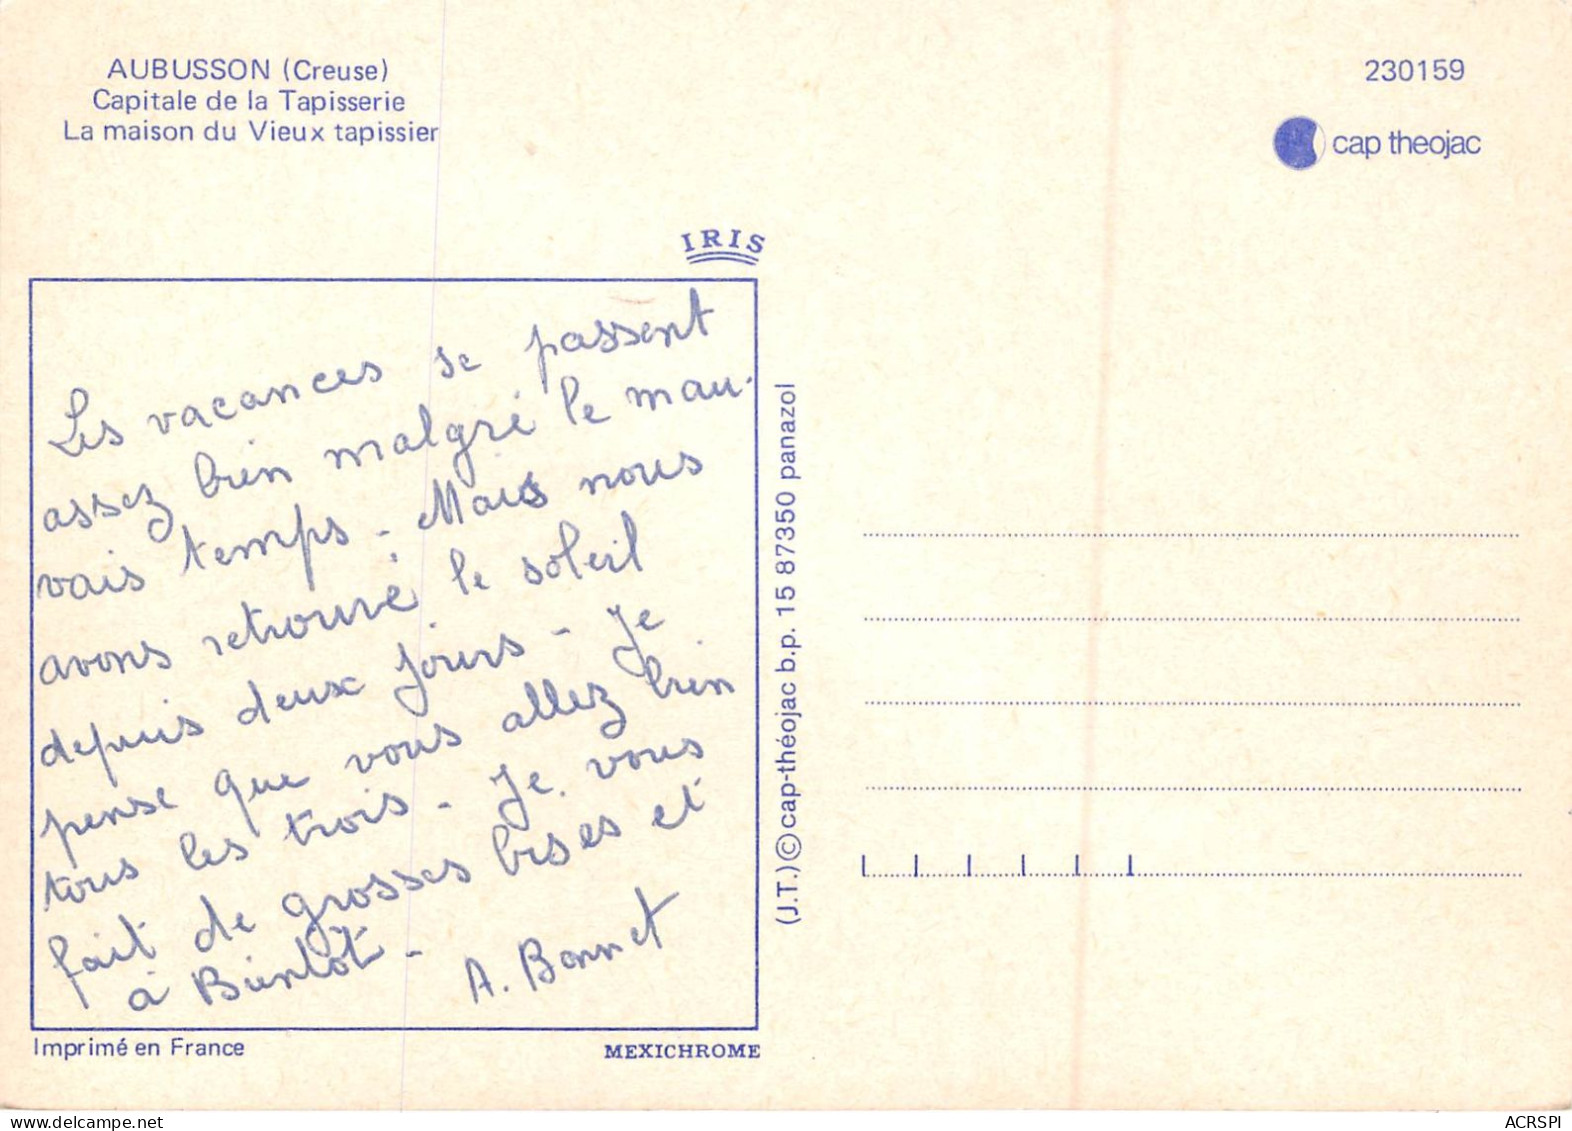 AUBUSSON (Creuse)
Capitale de la Tapisserie
La maison du Vieux tapissier
230159
cap theojac
IRIS
Les vacances se passent
assez bien malgré le mau-
vais temps - Mais nous
avons retrouvé le soleil
depuis deux jours - Je
pense que vous allez bien
tous les trois - Je vous
fait de grosses bises et
à Bientôt -
A. Bonnet
(J.T.) © cap-théojac b.p. 15 87350 panazol
Imprimé en France
MEXICHROME
delcampe.net
ACRSPI